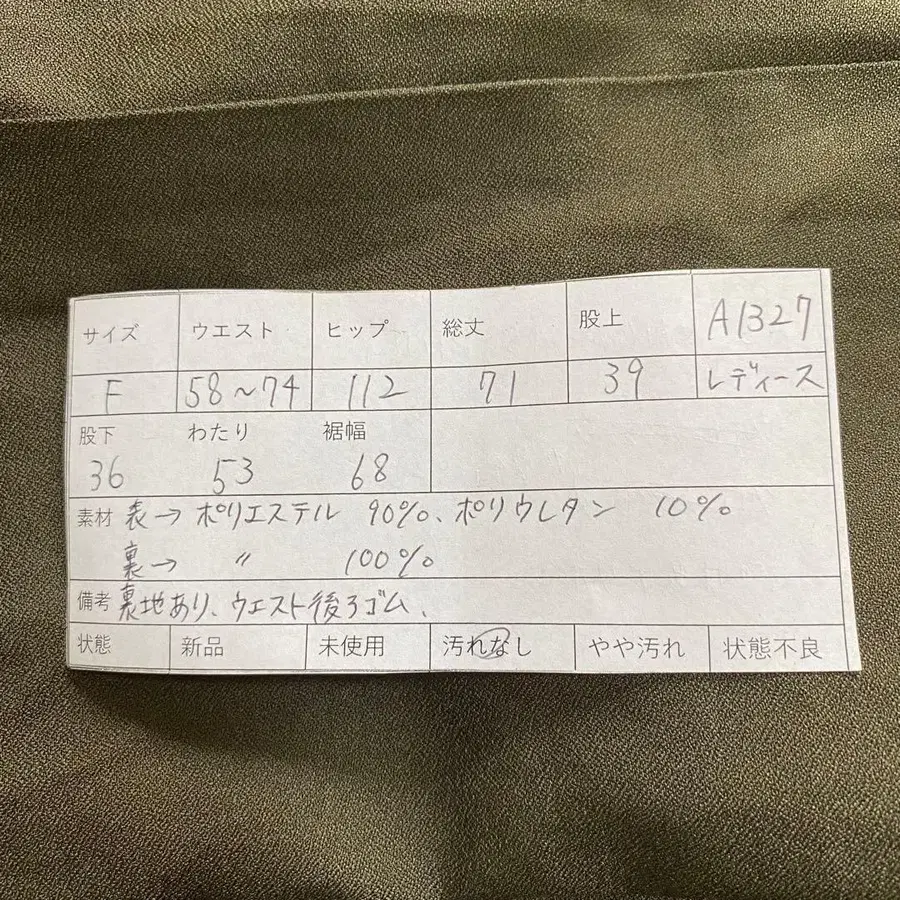 サイズ ウエスト ヒップ 総丈 股上 A1327
F 58〜74 112 71 39 レディース
股下 わたり 裾幅
36 53 68
素材 表→ポリエステル 90%、ポリウレタン 10%
裏→ 〃 100%
備考 裏地あり、ウエスト後ろゴム、
状態 新品 未使用 汚れなし やや汚れ 状態不良